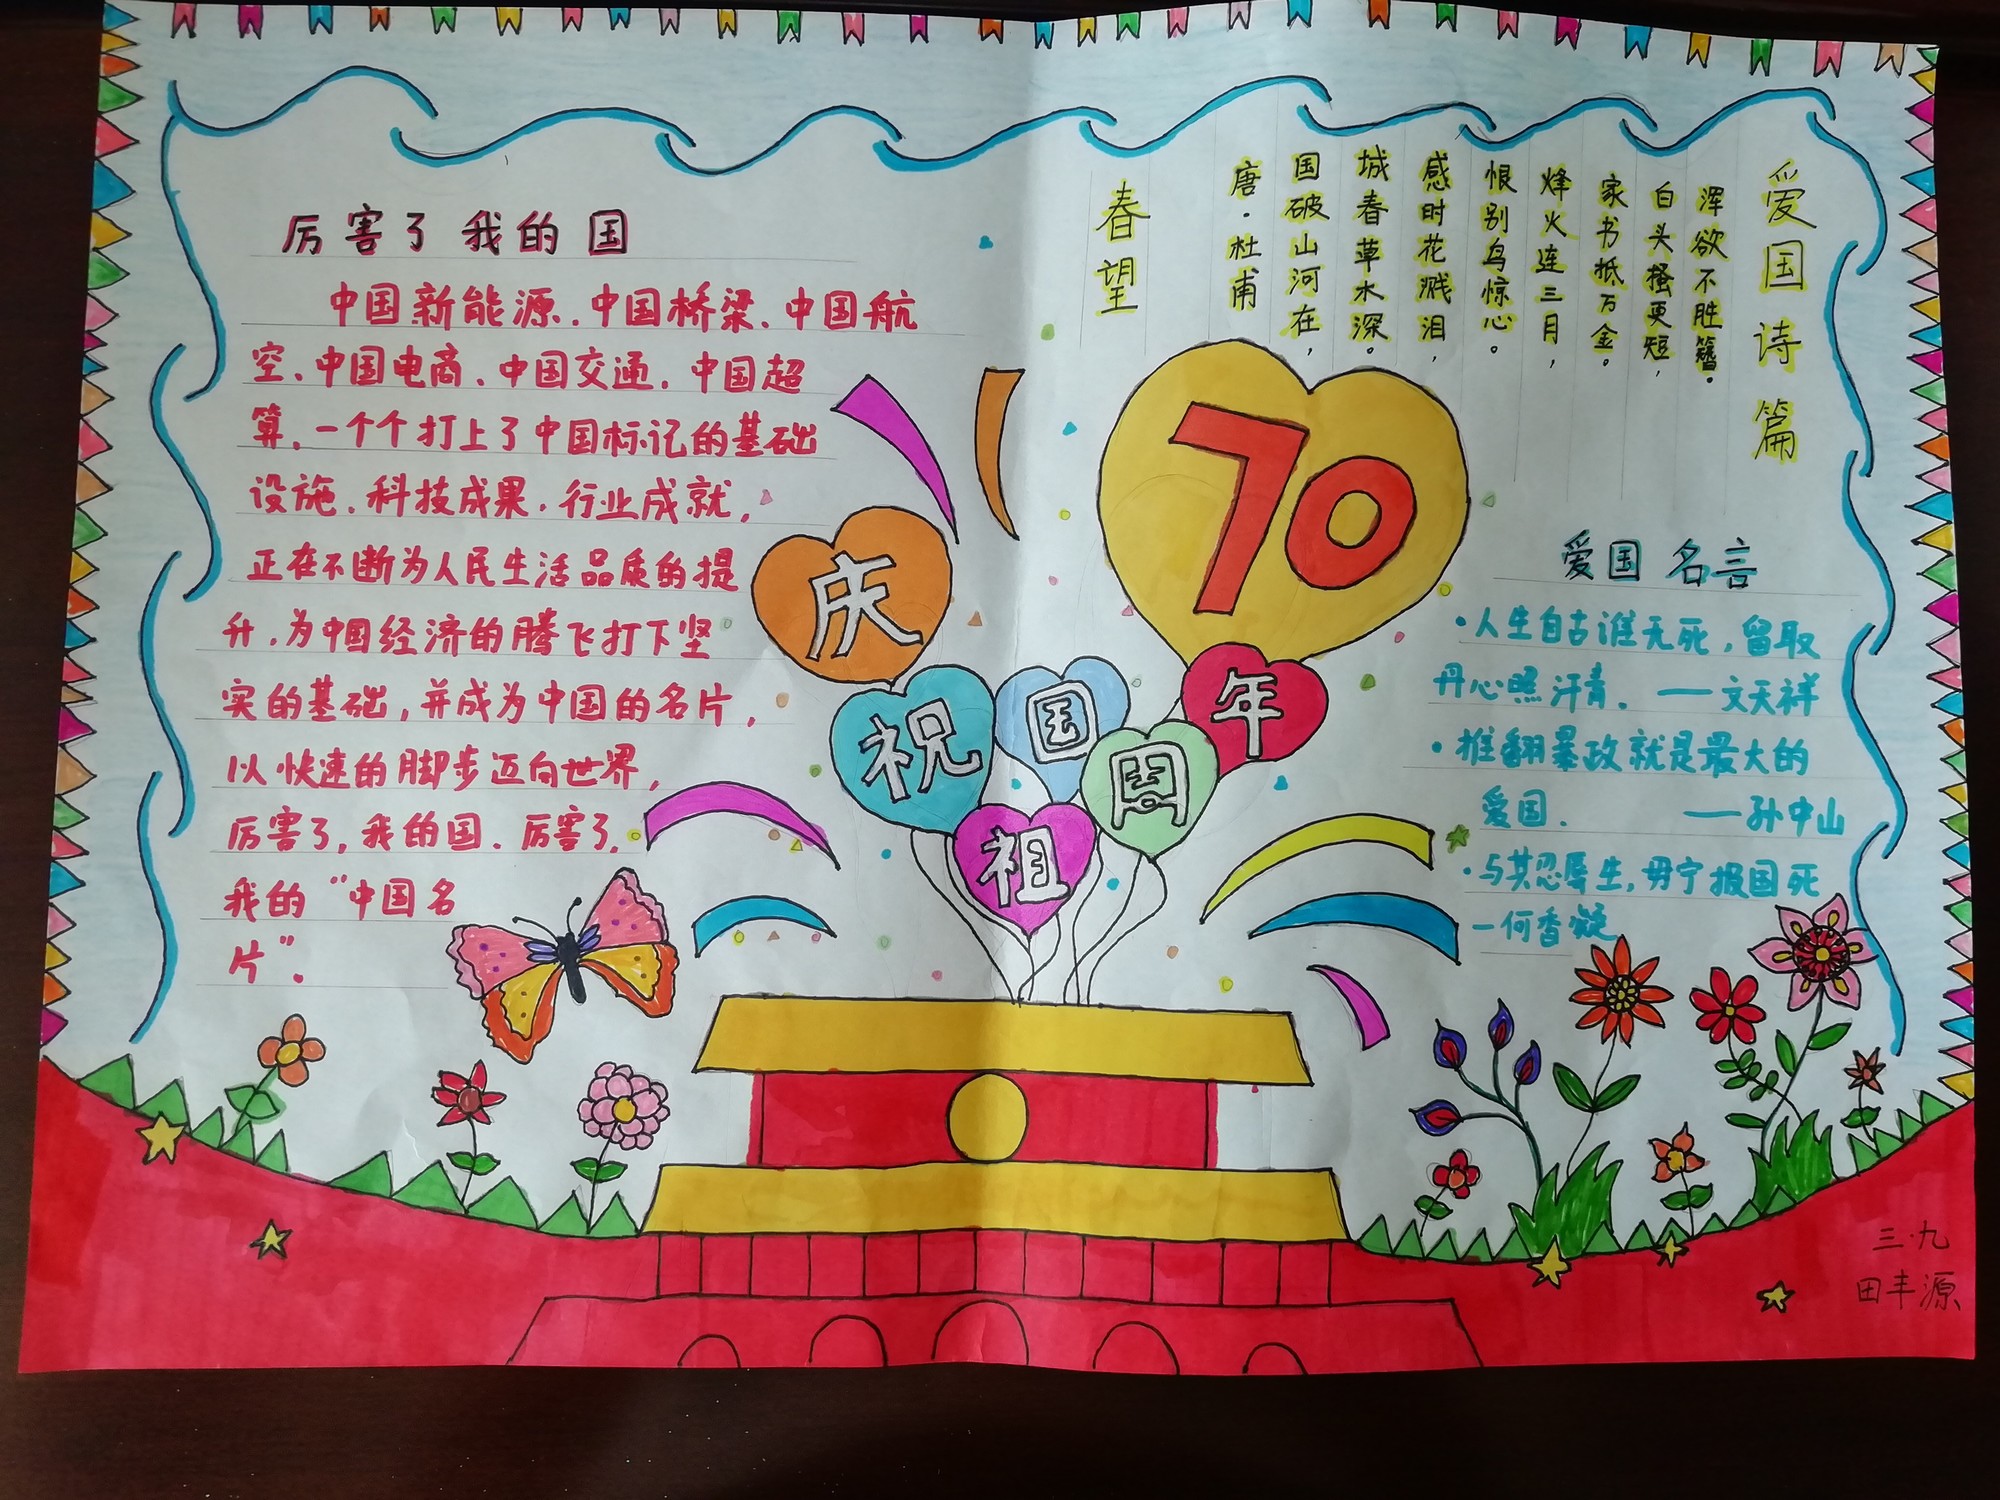 厉害了我的国
中国新能源、中国桥梁、中国航
空、中国电商、中国交通、中国超
算,一个个打上了中国标记的基础
设施、科技成果、行业成就,
正在不断为人民生活品质的提
升,为中国经济的腾飞打下坚
实的基础,并成为中国的名片,
以快速的脚步迈向世界,
厉害了,我的国、厉害了,
我的“中国名
片”。
庆
祝
祖
国
70
周
年
春望
唐·杜甫
国破山河在,
城春草木深。
感时花溅泪,
恨别鸟惊心。
烽火连三月,
家书抵万金。
白头搔更短,
浑欲不胜簪。
爱国诗篇
爱国名言
·人生自古谁无死,留取
丹心照汗青.——文天祥
·推翻暴政就是最大的
爱国.——孙中山
·与其忍辱生,毋宁报国死
一何香凝
三.九
田丰源